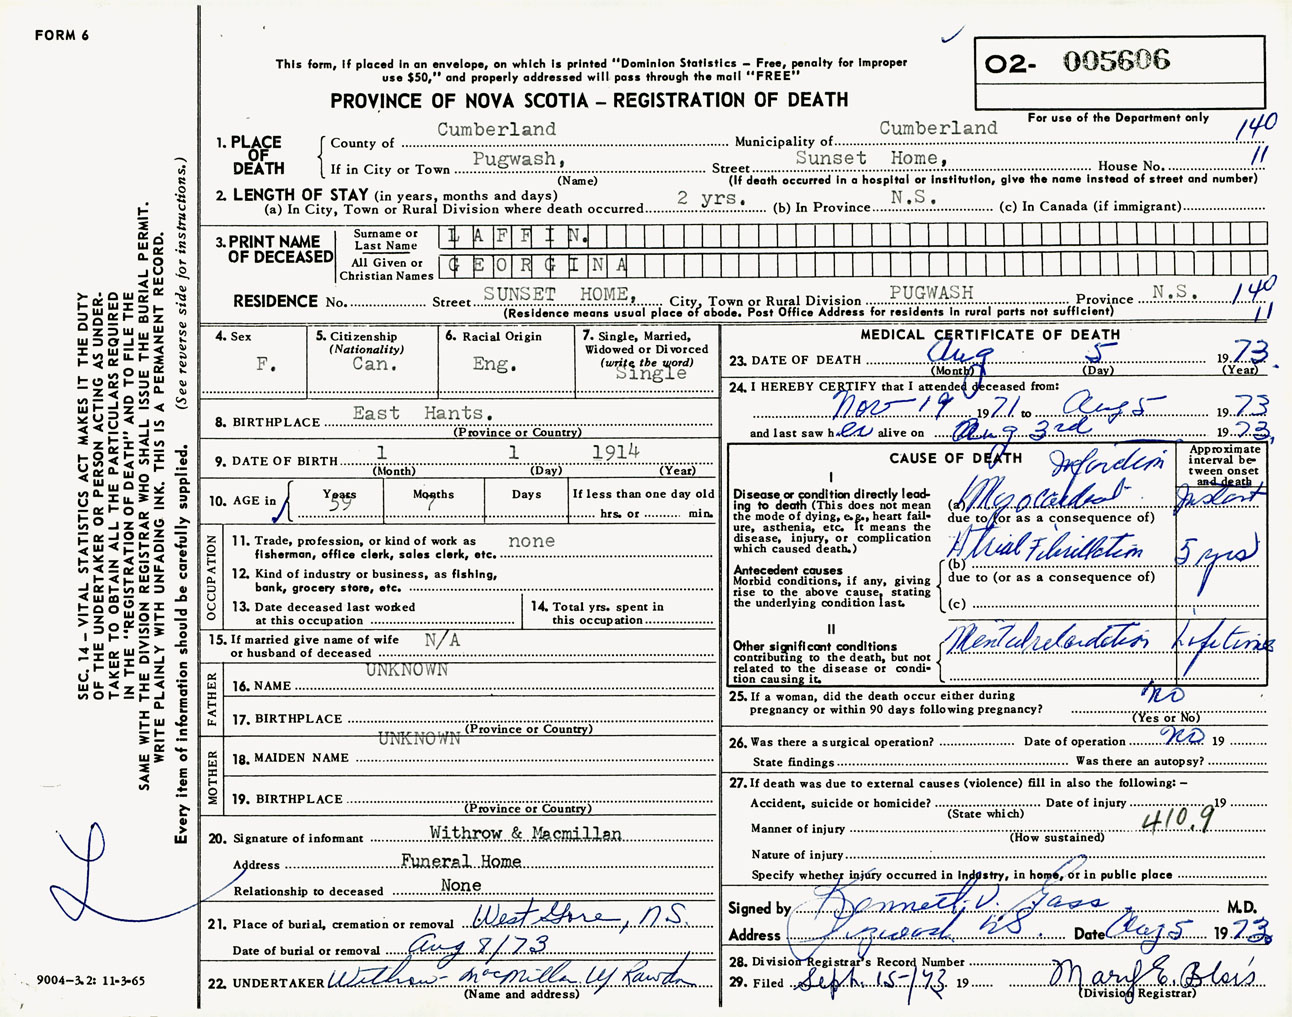 FORM 6
This form, if placed in an envelope, on which is printed "Dominion Statistics – Free, penalty for improper
use $50," and properly addressed will pass through the mail "FREE"
PROVINCE OF NOVA SCOTIA – REGISTRATION OF DEATH
O2- 005606
For use of the Department only
140
11
1. PLACE OF DEATH
County of Cumberland Municipality of Cumberland
If in City or Town Pugwash, Street Sunset Home, House No.
(Name) (If death occurred in a hospital or institution, give the name instead of street and number)
2. LENGTH OF STAY (in years, months and days)
(a) In City, Town or Rural Division where death occurred 2 yrs. (b) In Province N.S. (c) In Canada (if immigrant)
3. PRINT NAME OF DECEASED
Surname or Last Name LAFFIN.
All Given or Christian Names GEORGINA
RESIDENCE No. Street SUNSET HOME, City, Town or Rural Division PUGWASH Province N.S. 140
(Residence means usual place of abode. Post Office Address for residents in rural parts not sufficient) 11
4. Sex
F.
5. Citizenship
(Nationality)
Can.
6. Racial Origin
Eng.
7. Single, Married,
Widowed or Divorced
(write the word)
Single
8. BIRTHPLACE East Hants.
(Province or Country)
9. DATE OF BIRTH 1 1 1914
(Month) (Day) (Year)
10. AGE in
Years Months Days If less than one day old
59 7 hrs. or min.
OCCUPATION
11. Trade, profession, or kind of work as none
fisherman, office clerk, sales clerk, etc.
12. Kind of industry or business, as fishing,
bank, grocery store, etc.
13. Date deceased last worked
at this occupation
14. Total yrs. spent in
this occupation
15. If married give name of wife N/A
or husband of deceased
FATHER
UNKNOWN
16. NAME
17. BIRTHPLACE
(Province or Country)
MOTHER
UNKNOWN
18. MAIDEN NAME
19. BIRTHPLACE
(Province or Country)
20. Signature of informant Withrow & Macmillan
Address Funeral Home
Relationship to deceased None
21. Place of burial, cremation or removal West Gore, N.S.
Date of burial or removal Aug 8/73
22. UNDERTAKER Withrow- MacMillan Rawdon
(Name and address)
MEDICAL CERTIFICATE OF DEATH
23. DATE OF DEATH Aug 5 19 73
(Month) (Day) (Year)
24. I HEREBY CERTIFY that I attended deceased from:
Nov 19 1971 to Aug 5 19 73
and last saw her alive on Aug 3rd 19 73
CAUSE OF DEATH
Approximate
interval be-
tween onset
and death
I
Disease or condition directly lead-
ing to death (This does not mean
the mode of dying, e.g., heart fail-
ure, asthenia, etc. It means the
disease, injury, or complication
which caused death.)
Infarction
(a) Myocardial Instant
due to (or as a consequence of)
Atrial Fibrillation 5 yrs
(b)
due to (or as a consequence of)
(c)
Antecedent causes
Morbid conditions, if any, giving
rise to the above cause, stating
the underlying condition last.
II
Other significant conditions
contributing to the death, but not
related to the disease or condi-
tion causing it.
Mental retardation Lifetime
25. If a woman, did the death occur either during
pregnancy or within 90 days following pregnancy? no
(Yes or No)
26. Was there a surgical operation? Date of operation no 19
State findings Was there an autopsy?
27. If death was due to external causes (violence) fill in also the following: –
Accident, suicide or homicide? Date of injury 19
(State which)
Manner of injury 410.9
(How sustained)
Nature of injury
Specify whether injury occurred in Industry, in home, or in public place
Signed by Kenneth V. Gass M.D.
Address Pugwash NS. Date Aug 5 19 73
28. Division Registrar's Record Number
29. Filed Sept. 15-/73 19 Mary E. Blois
(Division Registrar)
SEC. 14 – VITAL STATISTICS ACT MAKES IT THE DUTY
OF THE UNDERTAKER OR PERSON ACTING AS UNDER-
TAKER TO OBTAIN ALL THE PARTICULARS REQUIRED
IN THE "REGISTRATION OF DEATH" AND TO FILE THE
SAME WITH THE DIVISION REGISTRAR WHO SHALL ISSUE THE BURIAL PERMIT.
WRITE PLAINLY WITH UNFADING INK. THIS IS A PERMANENT RECORD.
Every item of information should be carefully supplied. (See reverse side for instructions.)
9004-3.2: 11-3-65